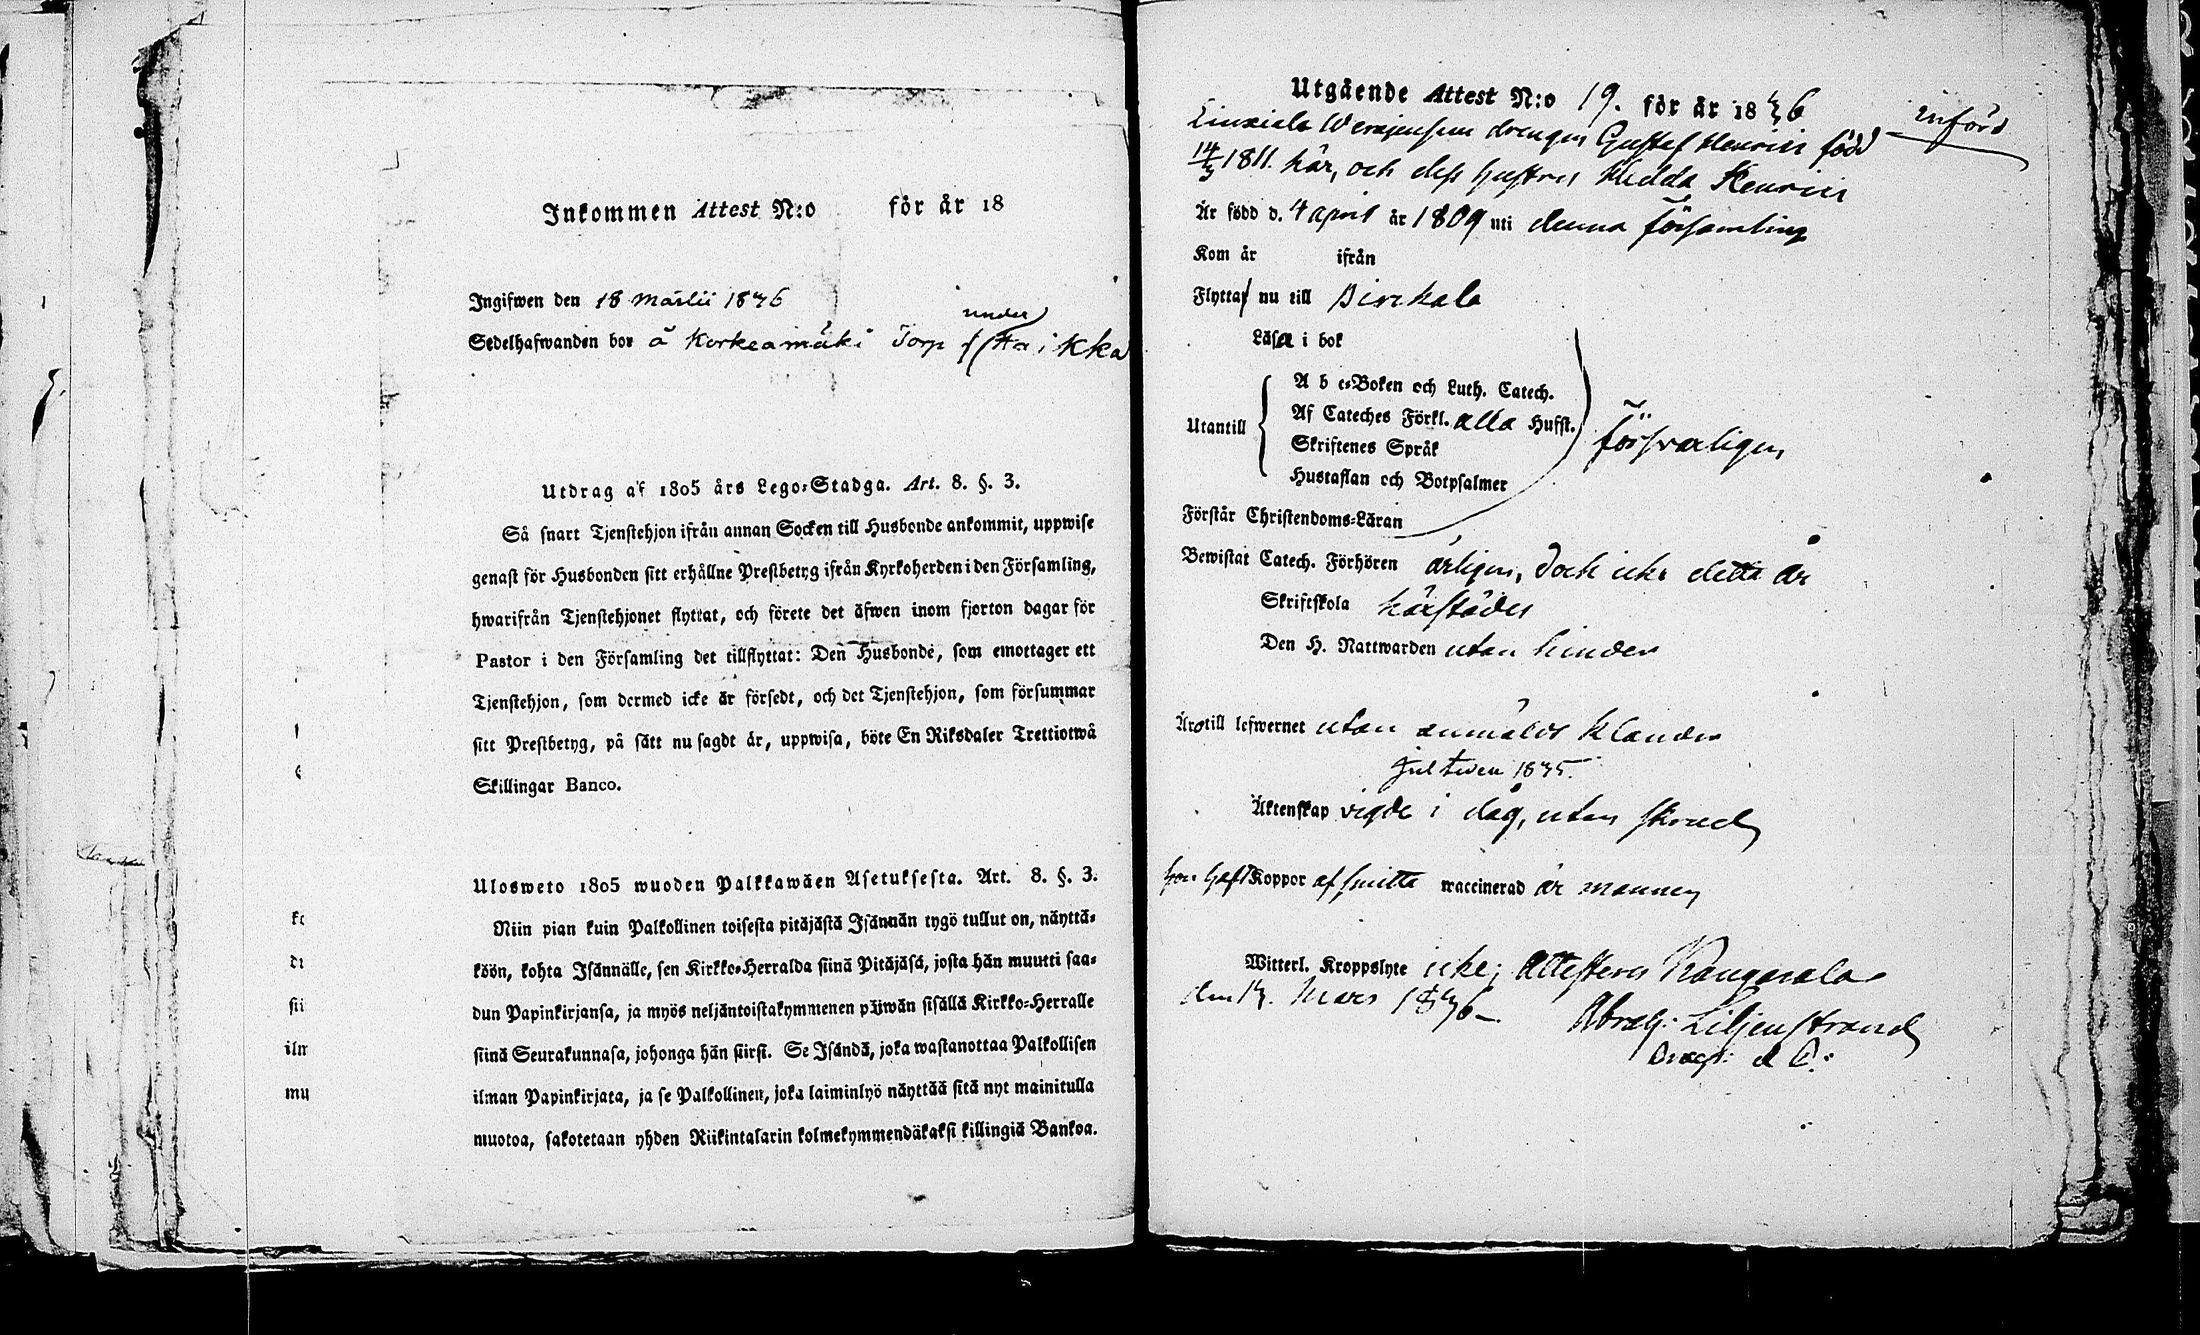 Inkommen Attest N:o för år 18
Ingifwen den 18 Martii 1846
under
Sedelhafwanden bor å Korkeamäki Torp
Utdrag af 1805 års Lego-Stadga. Art. 8. §. 3.
Så snart Tjenstehjon ifrån annan Socken till Husbonde ankommit, uppwise
genast för Husbonden sitt erhållne Prestbetyg ifrån Kyrkoherden i den Församling,
hwarifrån Tjenstehjonet flyttat, och förete det äfwen inom fjorton dagar för
Pastor i den Församling det tillflyttat: Den Husbonde, som emottager ett
Tjenstehjon, som dermed icke är försedt, och det Tjenstehjon, som försummar
sitt Prestbetyg, på sätt nu sagdt är, uppwisa, böte En Riksdaler Trettiotwå
Skillingar Banco.
Ulosweto 1805 wuoden Palkkawäen Asetuksesta. Art. 8. §. 3.
Niin pian kuin Palkollinen toisesta pitäjästä Isännän tygö tullut on, näyttä-
köön, kohta Isännälle, sen Kirkko-Herralda siinä Pitäjäsä, josta hän muutti saa-
dun Papinkirjansa, ja myös neljäntoistakymmenen päiwän sisällä Kirkko-Herralle
siinä Seurakunnasa, johonga hän siirsi. Se Isändä, joka wastanottaa Palkollisen
ilman Papinkirjata, ja se Palkollinen, joka laiminlyö näyttää sitä nyt mainitulla
muotoa, sakotetaan yhden Riikintalarin kolmekymmendäkaksi killingiä Bankoa.
ko
di
sii
ilm
mu
Utgående Attest N:o 19. för år 1846
införd
drengen Gustaf Henrics född
14/3 1811. här, och dess hustru Hedda Henrics
Är född d. 4 april år 1809 uti denna församling
Kom år ifrån
Flyttar nu till Birckala
Läsa i bok
A b c-Boken och Luth. Catech.
Utantill Af Cateches Förkl. alla Hufst. försvarligen
Skriftenes Språk
Hustaflan och Botpsalmer
Förstår Christendoms-Läran
Bewistat Catech. Förhören årligen, dock icke detta år
Skriftskola härstädes
Den H. Nattwarden utan hinder
Äro till lefwernet utan anmäldt klander
Jultiden 1845.
Äktenskap vigde i dag, utan skrud
hon haft Koppor af smitta waccinerad är mannen
Witterl. Kroppslyte icke; Attesterar Kangasala
den 17. Mars 1846
Abrah: Liljenstrand